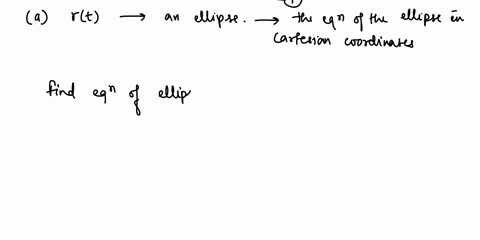 (a) r(t) ⟶ an ellipse. ⟶ the eqⁿ of the ellipse in
Cartesian coordinates
find eqⁿ of ellip